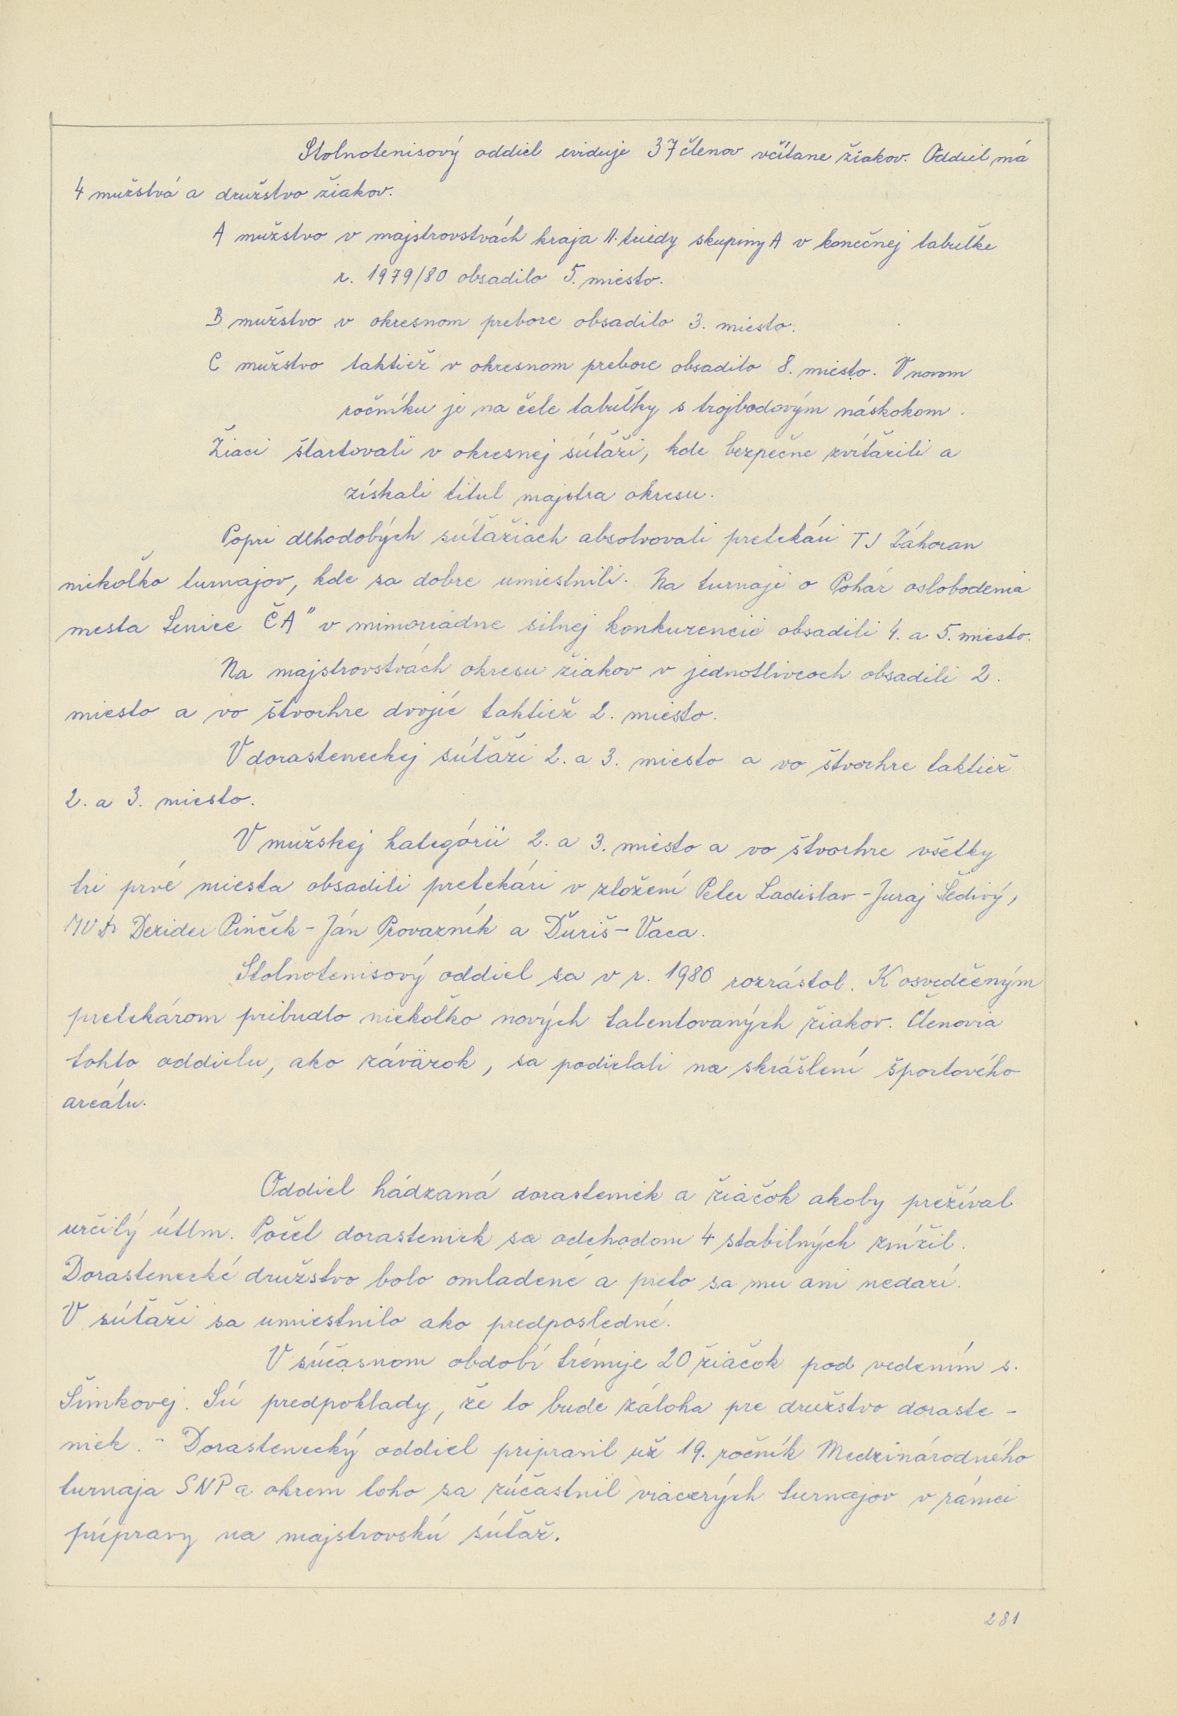 Stolnotenisový oddiel eviduje 37 členov včítane žiakov. Oddiel má
4 mužstvá a družstvo žiakov.
A mužstvo v majstrovstvách kraja II. triedy skupiny A v konečnej tabuľke
r. 1979/80 obsadilo 5. miesto.
B mužstvo v okresnom prebore obsadilo 3. miesto.
C mužstvo taktiež v okresnom prebore obsadilo 8. miesto. V novom
ročníku je na čele tabuľky s trojbodovým náskokom.
Žiaci štartovali v okresnej súťaži, kde bezpečne zvíťazili a
získali titul majstra okresu.
Popri dlhodobých súťažiach absolvovali pretekári TJ Záhoran
niekoľko turnajov, kde sa dobre umiestnili. Na turnaji o Pohár oslobodenia
mesta Senice ČA" v mimoriadne silnej konkurencii obsadili 4. a 5. miesto.
Na majstrovstvách okresu žiakov v jednotlivcoch obsadili 2.
miesto a vo štvorhre dvojíc taktiež 2. miesto.
V dorasteneckej súťaži 2. a 3. miesto a vo štvorhre taktiež
2. a 3. miesto.
V mužskej kategórii 2. a 3. miesto a vo štvorhre všetky
tri prvé miesta obsadili pretekári v zložení Peter Ladislav - Juraj Šedivý,
MVDr Dezider Pinček - Ján Provazník a Ďuriš - Vaca.
Stolnotenisový oddiel sa v r. 1980 rozrástol. K osvedčeným
pretekárom pribudlo niekoľko nových talentovaných žiakov. Členovia
tohto oddielu, ako záväzok, sa podielali na skrášlení športového
areálu.
Oddiel hádzaná dorasteniek a žiačok akoby prežíval
určitý útlm. Počet dorasteniek sa odchodom 4 stabilných znížil.
Dorastenecké družstvo bolo omladené a preto sa mu ani nedarí.
V súťaži sa umiestnilo ako predposledné.
V súčasnom období trénuje 20 žiačok pod vedením s.
Šimkovej. Sú predpoklady, že to bude záloha pre družstvo doraste-
niek. - Dorastenecký oddiel pripravil už 19. ročník Medzinárodného
turnaja SNP a okrem toho sa zúčastnil viacerých turnajov v rámci
prípravy na majstrovskú súťaž.
281